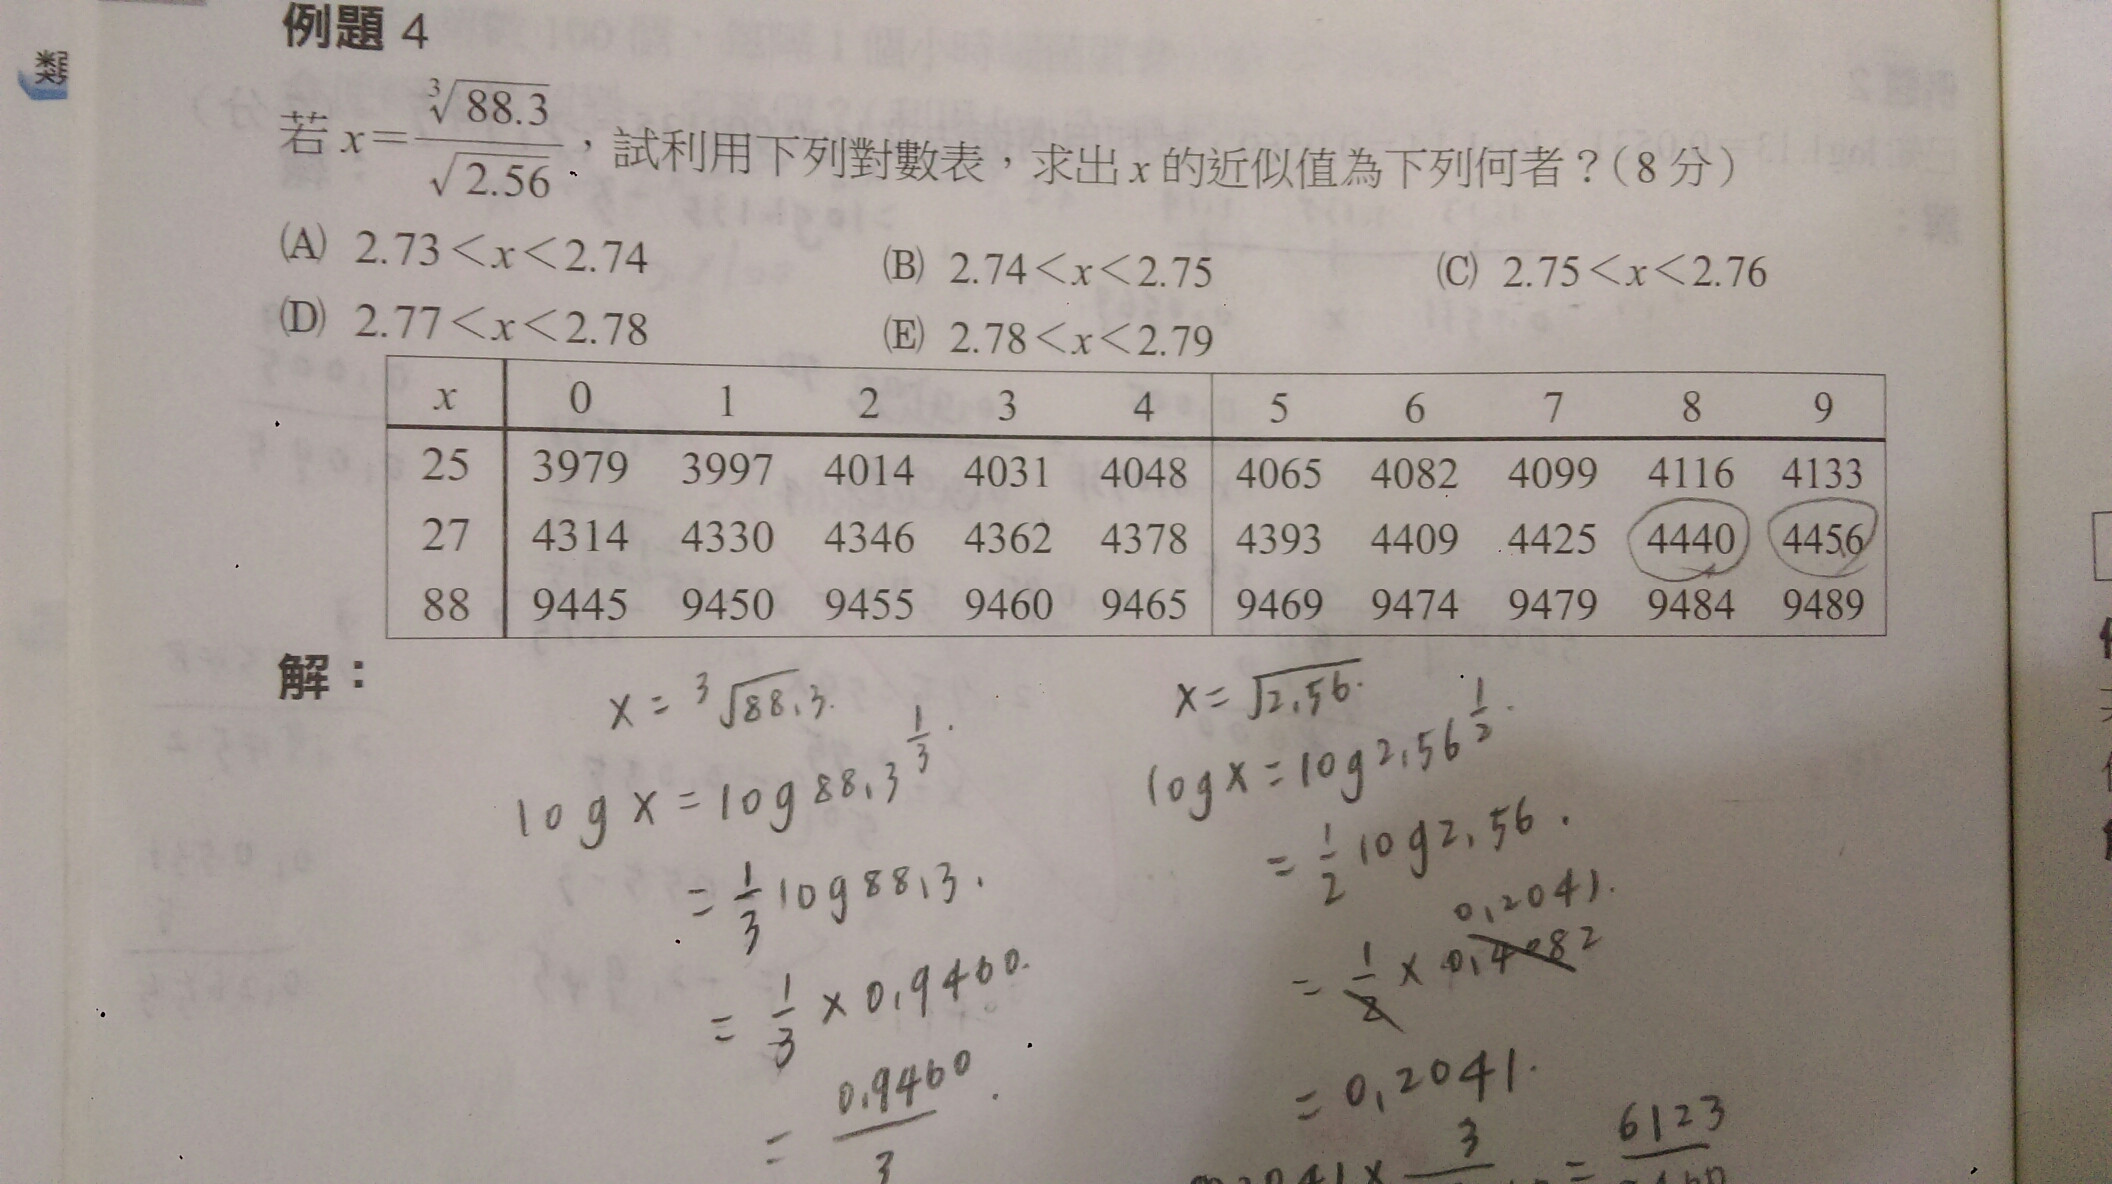 類
例題 4
若 x=∛88.3/√2.56,試利用下列對數表,求出 x 的近似值為下列何者?(8 分)
(A) 2.73<x<2.74 (B) 2.74<x<2.75 (C) 2.75<x<2.76
(D) 2.77<x<2.78 (E) 2.78<x<2.79
x 0 1 2 3 4 5 6 7 8 9
25 3979 3997 4014 4031 4048 4065 4082 4099 4116 4133
27 4314 4330 4346 4362 4378 4393 4409 4425 4440 4456
88 9445 9450 9455 9460 9465 9469 9474 9479 9484 9489
解:
x = ∛88.3
log x = log 88.3^(1/3)
= 1/3 log 88.3
= 1/3 × 0.9460
= 0.9460/3
x = √2.56
log x = log 2.56^(1/2)
= 1/2 log 2.56
0.2041
= 1/2 × 0.4082
= 0.2041
2041 × 3 = 6123